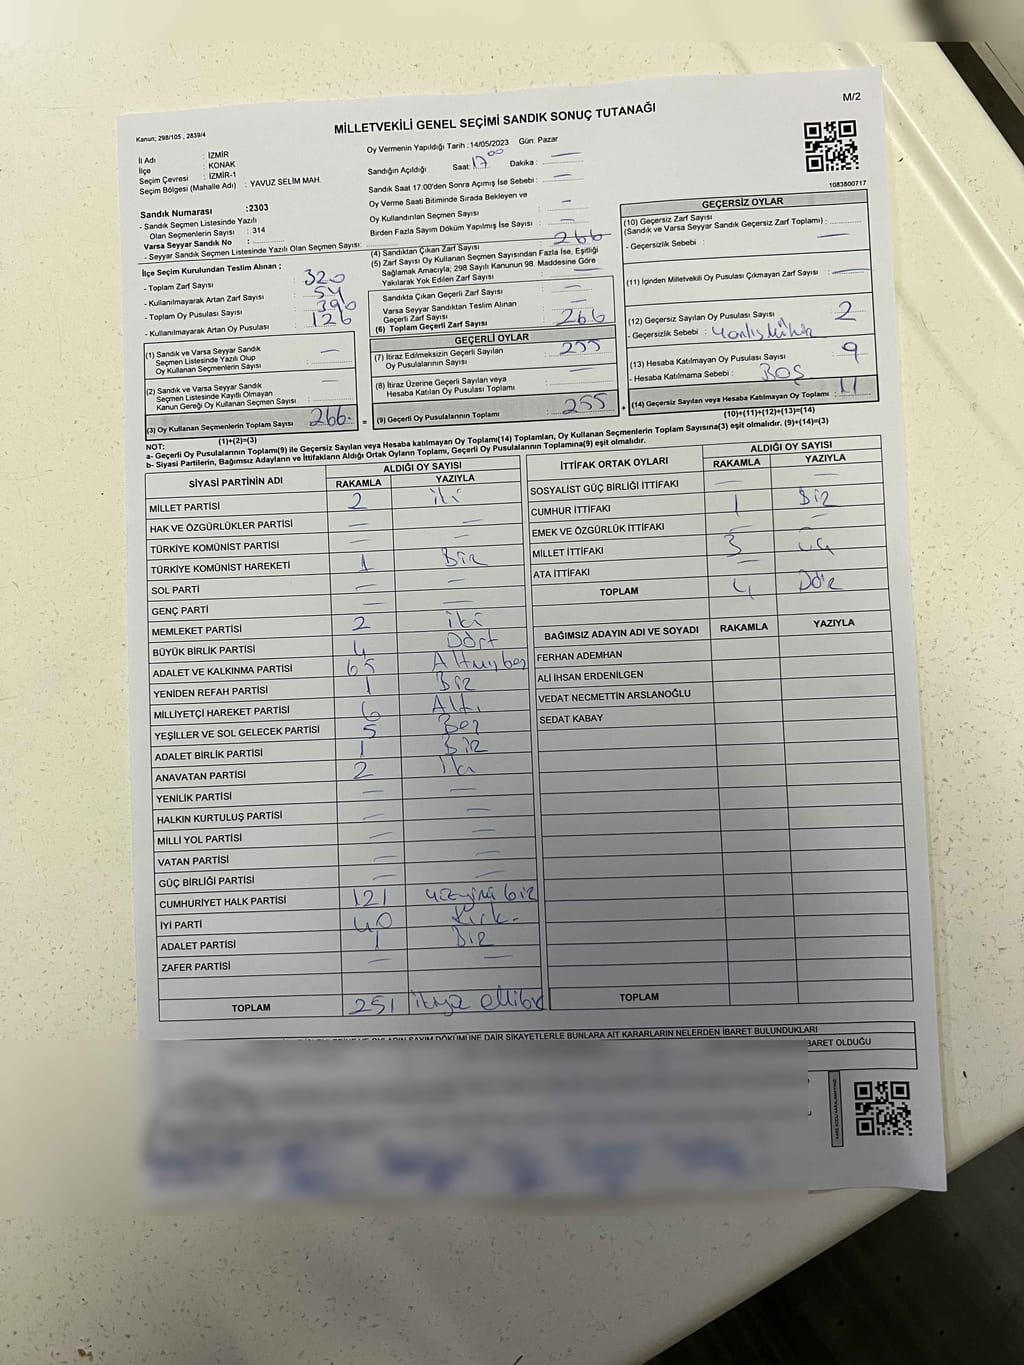 M/2
Kanun; 298/105 , 2839/4
MİLLETVEKİLİ GENEL SEÇİMİ SANDIK SONUÇ TUTANAĞI
İl Adı : İZMİR
İlçe : KONAK
Seçim Çevresi : İZMİR-1
Seçim Bölgesi (Mahalle Adı) : YAVUZ SELİM MAH.
Sandık Numarası :2303
- Sandık Seçmen Listesinde Yazılı
Olan Seçmenlerin Sayısı : 314
Varsa Seyyar Sandık No :
- Seyyar Sandık Seçmen Listesinde Yazılı Olan Seçmen Sayısı:
Oy Vermenin Yapıldığı Tarih :14/05/2023 Gün: Pazar
Sandığın Açıldığı Saat: 17 00 Dakika : —
Sandık Saat 17.00'den Sonra Açımış İse Sebebi : —
Oy Verme Saati Bitiminde Sırada Bekleyen ve
Oy Kullandırılan Seçmen Sayısı : —
Birden Fazla Sayım Döküm Yapılmış İse Sayısı : —
İlçe Seçim Kurulundan Teslim Alınan ;
- Toplam Zarf Sayısı : 320
- Kullanılmayarak Artan Zarf Sayısı : 54
- Toplam Oy Pusulası Sayısı : 390
- Kullanılmayarak Artan Oy Pusulası : 126
(1) Sandık ve Varsa Seyyar Sandık
Seçmen Listesinde Yazılı Olup
Oy Kullanan Seçmenlerin Sayısı : —
(2) Sandık ve Varsa Seyyar Sandık
Seçmen Listesinde Kayıtlı Olmayan
Kanun Gereği Oy Kullanan Seçmen Sayısı : —
(3) Oy Kullanan Seçmenlerin Toplam Sayısı : 266
(1)+(2)=(3)
(4) Sandıktan Çıkan Zarf Sayısı : 266
(5) Zarf Sayısı Oy Kullanan Seçmen Sayısından Fazla İse, Eşitliği
Sağlamak Amacıyla; 298 Sayılı Kanunun 98. Maddesine Göre
Yakılarak Yok Edilen Zarf Sayısı : —
Sandıkta Çıkan Geçerli Zarf Sayısı : —
Varsa Seyyar Sandıktan Teslim Alınan
Geçerli Zarf Sayısı : —
(6) Toplam Geçerli Zarf Sayısı : 266
GEÇERLİ OYLAR
(7) İtiraz Edilmeksizin Geçerli Sayılan
Oy Pusulalarının Sayısı : 255
(8) İtiraz Üzerine Geçerli Sayılan veya
Hesaba Katılan Oy Pusulası Toplamı : —
= (9) Geçerli Oy Pusulalarının Toplamı : 255 +
1083800717
GEÇERSİZ OYLAR
(10) Geçersiz Zarf Sayısı
(Sandık ve Varsa Seyyar Sandık Geçersiz Zarf Toplamı) :
- Geçersizlik Sebebi : —
(11) İçinden Milletvekili Oy Pusulası Çıkmayan Zarf Sayısı : —
(12) Geçersiz Sayılan Oy Pusulası Sayısı : 2
- Geçersizlik Sebebi : Yanlış Mühür
(13) Hesaba Katılmayan Oy Pusulası Sayısı : 9
- Hesaba Katılmama Sebebi : BOŞ
(14) Geçersiz Sayılan veya Hesaba Katılmayan Oy Toplamı : 11
(10)+(11)+(12)+(13)=(14)
NOT:
a- Geçerli Oy Pusulalarının Toplamı(9) ile Geçersiz Sayılan veya Hesaba katılmayan Oy Toplamı(14) Toplamları, Oy Kullanan Seçmenlerin Toplam Sayısına(3) eşit olmalıdır. (9)+(14)=(3)
b- Siyasi Partilerin, Bağımsız Adayların ve İttifakların Aldığı Ortak Oyların Toplamı, Geçerli Oy Pusulalarının Toplamına(9) eşit olmalıdır.
SİYASİ PARTİNİN ADI ALDIĞI OY SAYISI
RAKAMLA YAZIYLA
MİLLET PARTİSİ 2 iki
HAK VE ÖZGÜRLÜKLER PARTİSİ — —
TÜRKİYE KOMÜNİST PARTİSİ — —
TÜRKİYE KOMÜNİST HAREKETİ 1 Bir
SOL PARTİ — —
GENÇ PARTİ — —
MEMLEKET PARTİSİ 2 iki
BÜYÜK BİRLİK PARTİSİ 4 Dört
ADALET VE KALKINMA PARTİSİ 65 Altmışbeş
YENİDEN REFAH PARTİSİ 1 Bir
MİLLİYETÇİ HAREKET PARTİSİ 6 Altı
YEŞİLLER VE SOL GELECEK PARTİSİ 5 Beş
ADALET BİRLİK PARTİSİ 1 Bir
ANAVATAN PARTİSİ 2 İki
YENİLİK PARTİSİ — —
HALKIN KURTULUŞ PARTİSİ — —
MİLLİ YOL PARTİSİ — —
VATAN PARTİSİ — —
GÜÇ BİRLİĞİ PARTİSİ — —
CUMHURİYET HALK PARTİSİ 121 yüzyirmi bir
İYİ PARTİ 40 Kırk
ADALET PARTİSİ 1 Bir
ZAFER PARTİSİ — —
TOPLAM 251 ikiyüz ellibir
İTTİFAK ORTAK OYLARI ALDIĞI OY SAYISI
RAKAMLA YAZIYLA
SOSYALİST GÜÇ BİRLİĞİ İTTİFAKI — —
CUMHUR İTTİFAKI 1 Bir
EMEK VE ÖZGÜRLÜK İTTİFAKI — —
MİLLET İTTİFAKI 3 üç
ATA İTTİFAKI — —
TOPLAM 4 Dört
BAĞIMSIZ ADAYIN ADI VE SOYADI RAKAMLA YAZIYLA
FERHAN ADEMHAN
ALİ İHSAN ERDENİLGEN
VEDAT NECMETTİN ARSLANOĞLU
SEDAT KABAY
TOPLAM
SAYIM DÖKÜMÜNE DAİR ŞİKAYETLERLE BUNLARA AİT KARARLARIN NELERDEN İBARET BULUNDUKLARI
BARET OLDUĞU